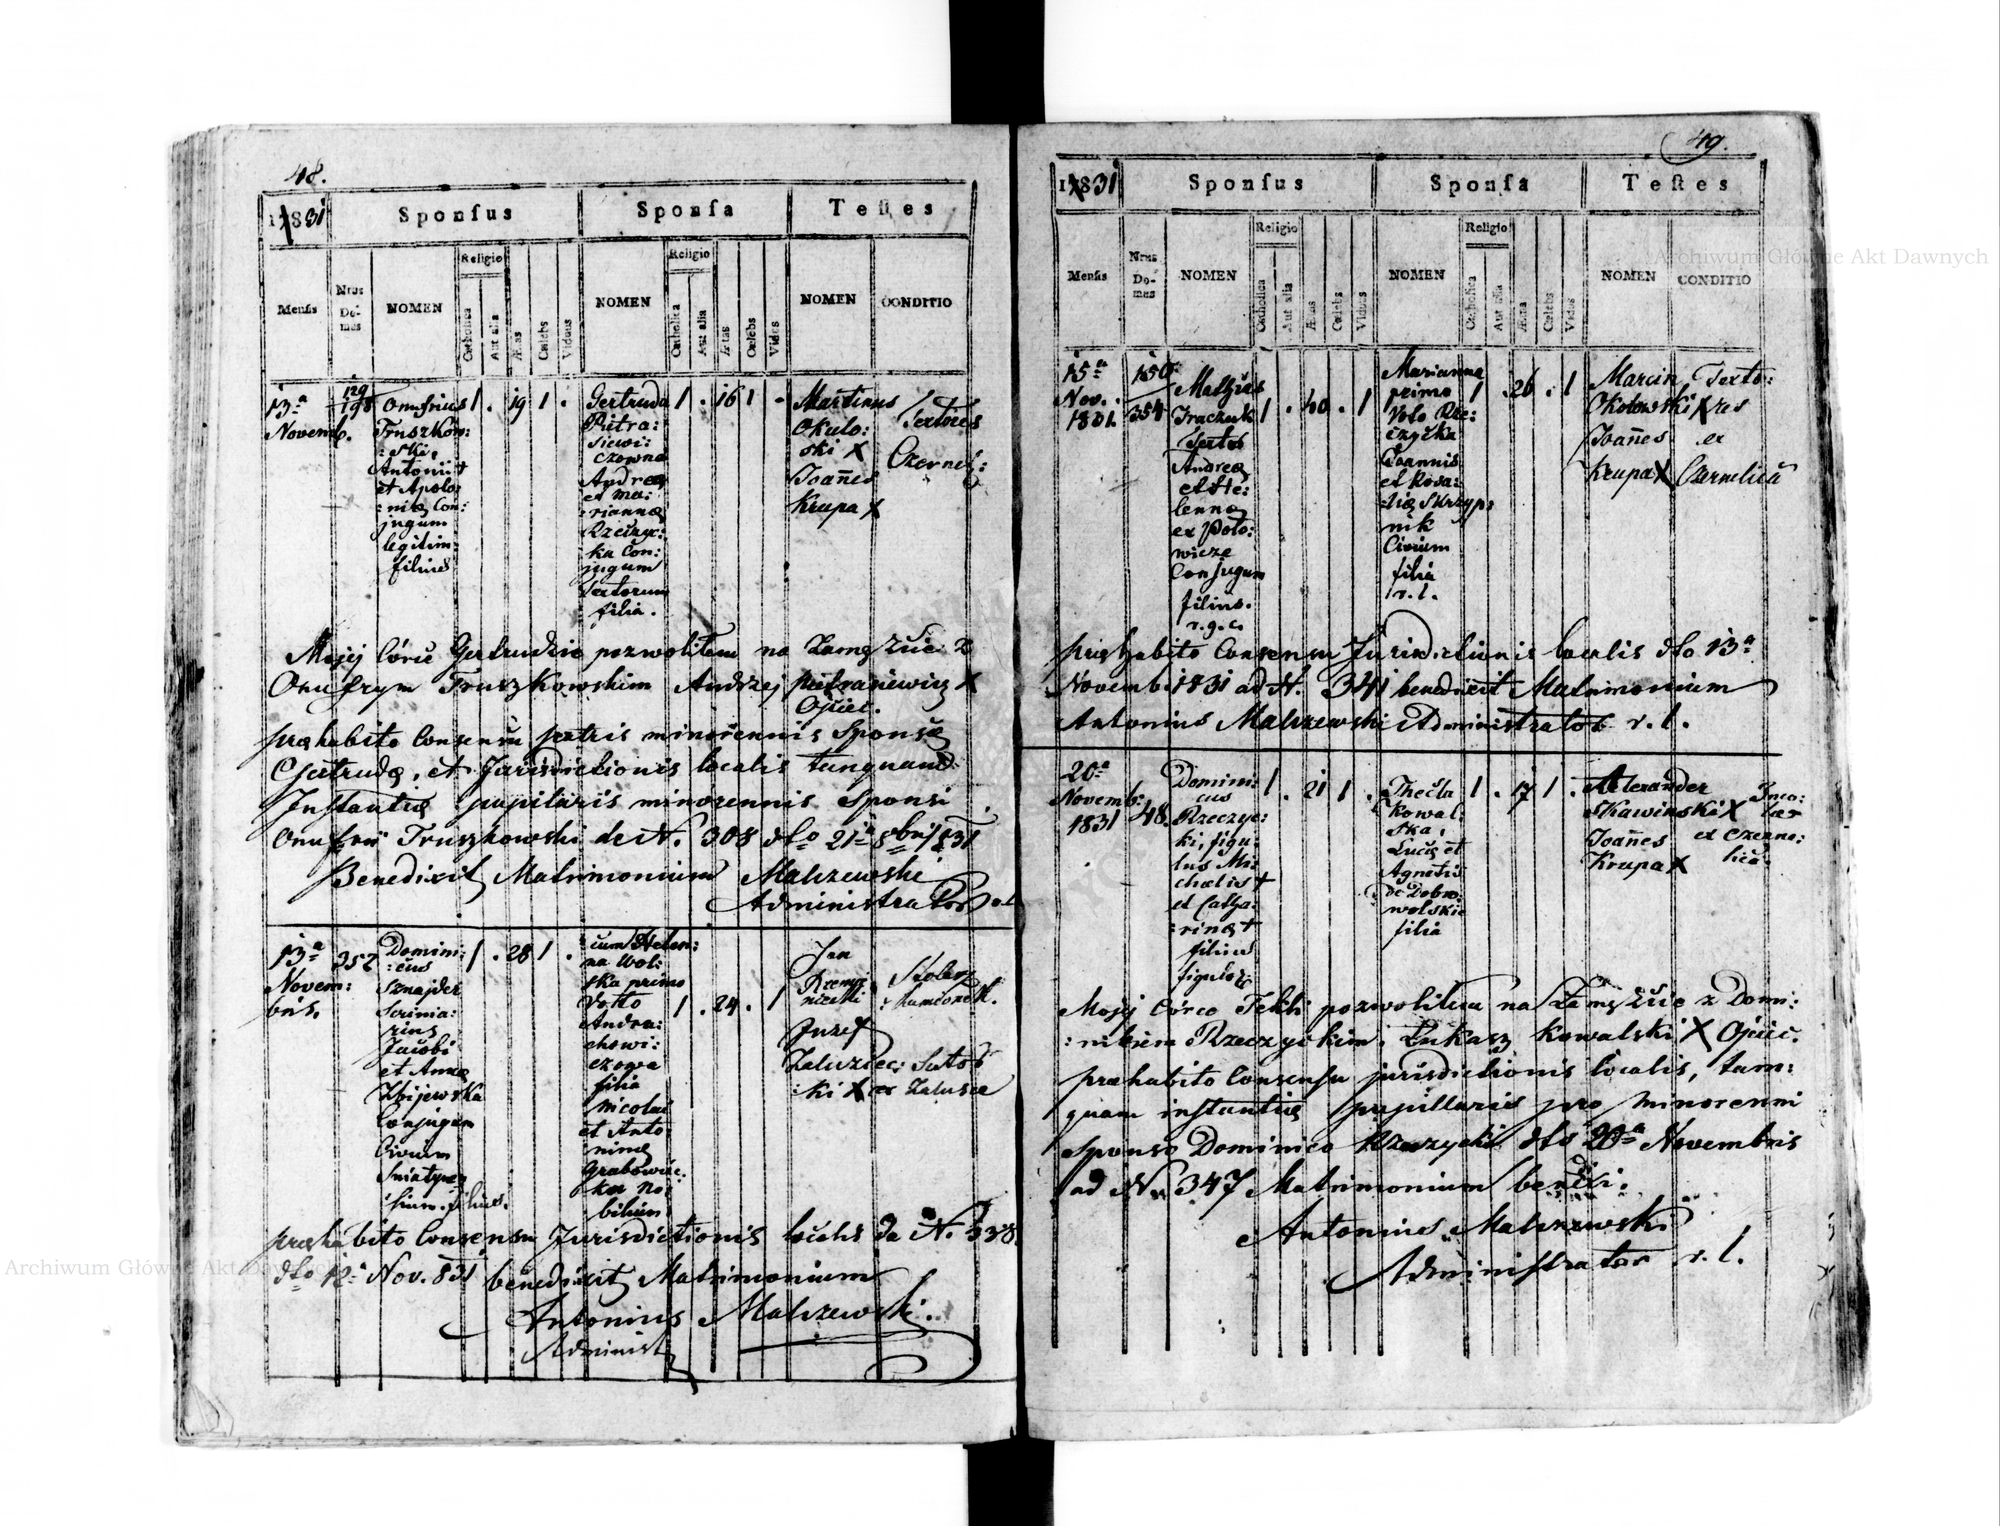 48.
1831
Sponsus
Sponsa
Testes
Mensis
Nrus Domus
NOMEN
Religio
Catholica
Aut alia
Ætas
Cælebs
Viduus
NOMEN
Religio
Catholica
Aut alia
Ætas
Cælebs
Vidua
NOMEN
CONDITIO
13ª
Novemb.
129
198
Onufrius
Truszkow:
:ski,
Antonii †
et Apolo:
:niæ Con:
jugum
legitim:
filius
1 . 19 1 .
Gertruda
Pietra:
siewi:
czowna
Andreæ
et Ma:
riannæ
Rzeczyc:
ka Con:
jugum
Textorum
filia.
1 . 16 1 .
Martinus
Okulo:
ski X
Joañes
Krupa X
Textores
Czernel:
Mojej Córce Gertrudzie pozwoliłem na Zamęzcie z
Onufrym Truszkowskim Andrzej Pietrasiewicz X
Ojciec.
præhabito Consensu patris minorennis Sponsæ
Gertrudæ, et Jurisdictionis localis tanquam
Instantiæ pupilaris minorennis Sponsi
Onufrii Truszkowski de N. 308 dto 21ª 8bris 1831
Benedixit Matrimonium Malszewski
Administrator r.l.
13ª
Novem:
bris.
357
Domini:
:cus
Sznajder
Scrinia:
rius
Jacobi
et Annæ
Zbijewska
Conjugum
Civium
Sniatyn
:sium filius.
1 . 28 1 .
cum Helen:
na Wol:
ska primo
Votto
Andra:
chowi:
czowa
filia
Nicolai
et Anto:
ninæ
Grabowiec:
kie No:
bilium
1 . 24 . 1
Jan
Józef
Zaluziec:
:ki X
Sutor
ex Zalucza
præhabito Consensu Jurisdictionis localis de N. 338
dto 12ª Nov. 831 benedixit Matrimonium
Antonius Malszewski.
Administ
49.
1831
Sponsus
Sponsa
Testes
Mensis
Nrus Domus
NOMEN
Religio
Catholica
Aut alia
Ætas
Cælebs
Viduus
NOMEN
Religio
Catholica
Aut alia
Ætas
Cælebs
Vidua
NOMEN
CONDITIO
15ª
Nov.
1831.
150
354
Mathias
Traczuk
Textor
Andreæ
et He:
lennæ
ex Poto:
wicze
Conjugum
filius.
r.g.c.
1 . 40 . 1
Marianna
primo
Voto Rze:
czycka
Joannis
et Rosa:
liæ Skrzyp:
nik
Civium
filia
r.l.
1 . 26 . 1
Marcin
Okolowski X
Joañes
Krupa X
Texto:
res
ex
Czernelica
præhabito Consensu Jurisdictionis localis dto 13ª
Novemb. 1831 ad N. 341 benedixit Matrimonium
Antonius Malszewski Administrator r.l.
20ª
Novemb:
1831
48.
Domini:
cus
Rzeczyc:
ki, figu:
lus Mi:
chælis †
et Catha:
:rinæ †
filius
figuloz:
1 . 21 1 .
Thecla
Kowal:
ska,
Lucæ et
Agnetis
de Dobro:
wolskie
filia
1 . 17 1 .
Alexander
Skawinski X
Joañes
Krupa X
Inco:
læ
ex Czerne:
lica.
Mojej Córce Tekli pozwoliłem na Zamęzcie z Domi:
:nikiem Rzeczyckim. Łukasz Kowalski X Ojciec.
præhabito Consensu jurisdictionis localis, tam:
quam instantiæ pupillaris pro minorenni
sponso Dominico Rzeczycki dto 20ª Novembris
ad N. 347 Matrimonium benedixi.
Antonius Malszewski
Administrator r.l.
Archiwum Główne Akt Dawnych
Archiwum Główne Akt Dawnych